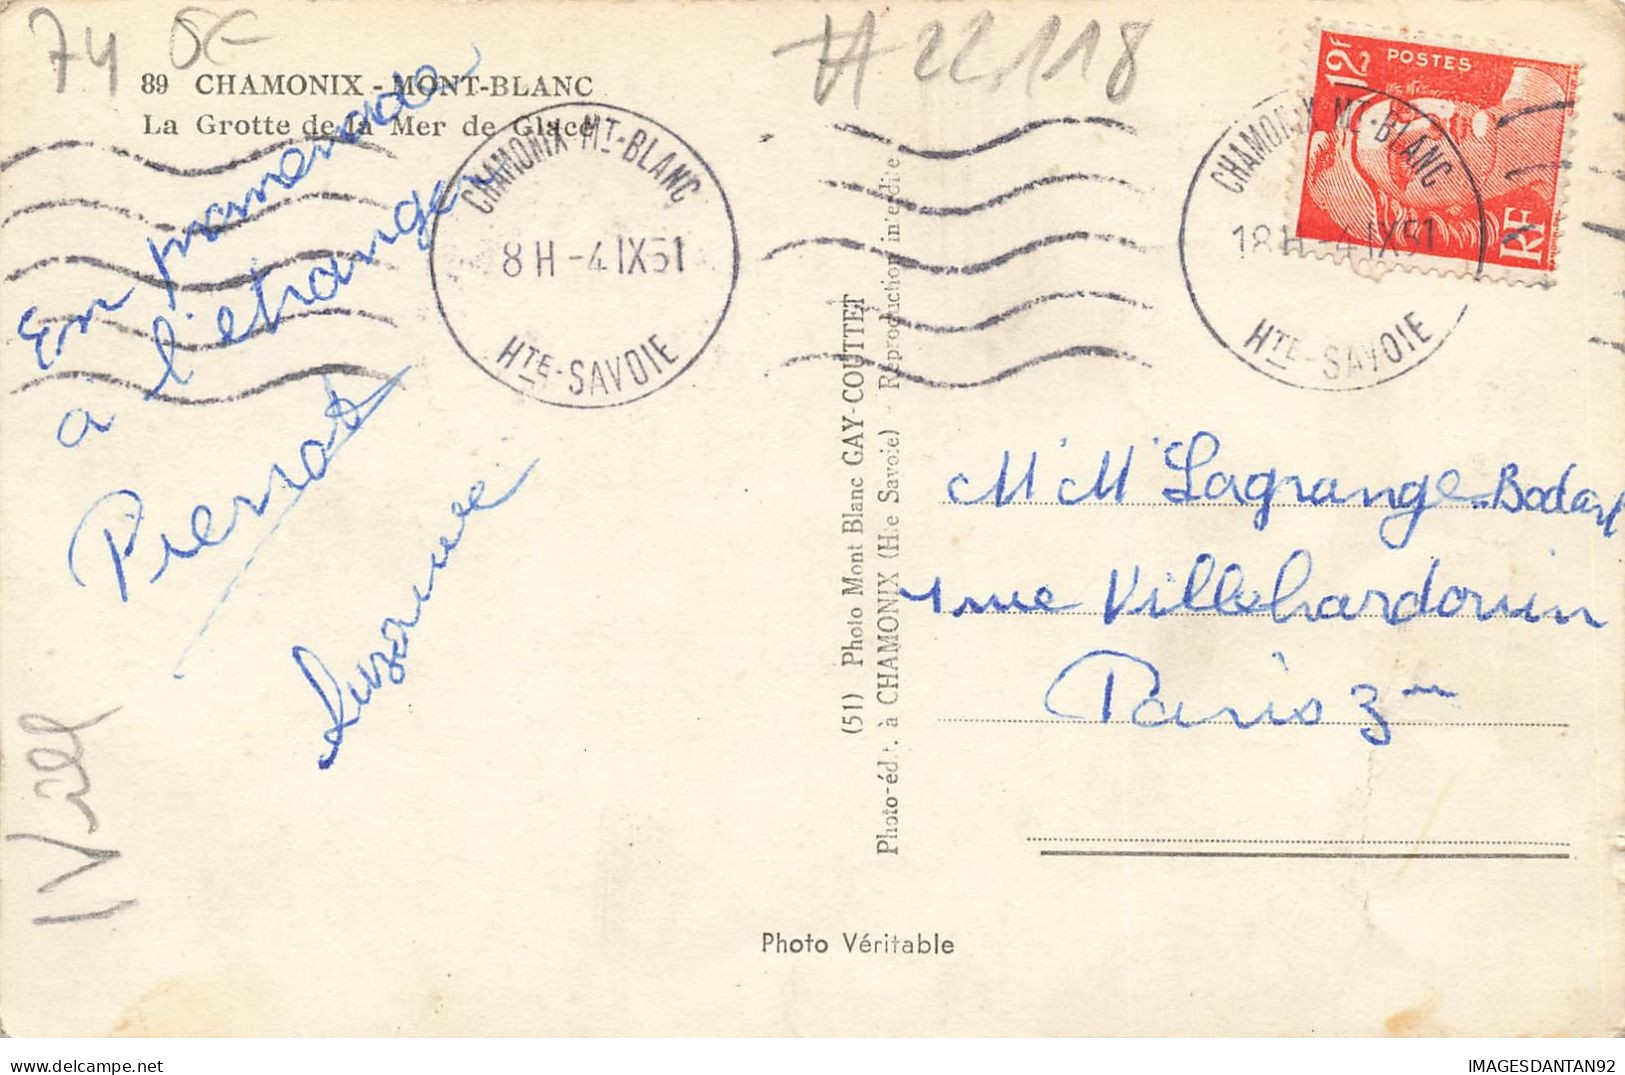 74
H 22.118
89 CHAMONIX - MONT-BLANC
La Grotte de la Mer de Glace
CHAMONIX-MT-BLANC
8H-4 IX51
HTE-SAVOIE
12F
POSTES
RF
CHAMONIX MT-BLANC
18H-4 IX51
HTE-SAVOIE
En promenade
à l'étranger
Pierrot
Suzanne
(51) Photo Mont Blanc GAY-COUTTET
Photo-édit. à CHAMONIX (Hte Savoie) - Reproduction interdite
M M Lagrange-Bodart
1 rue Villehardouin
Paris 3me
Photo Véritable
IMAGESDANTAN92